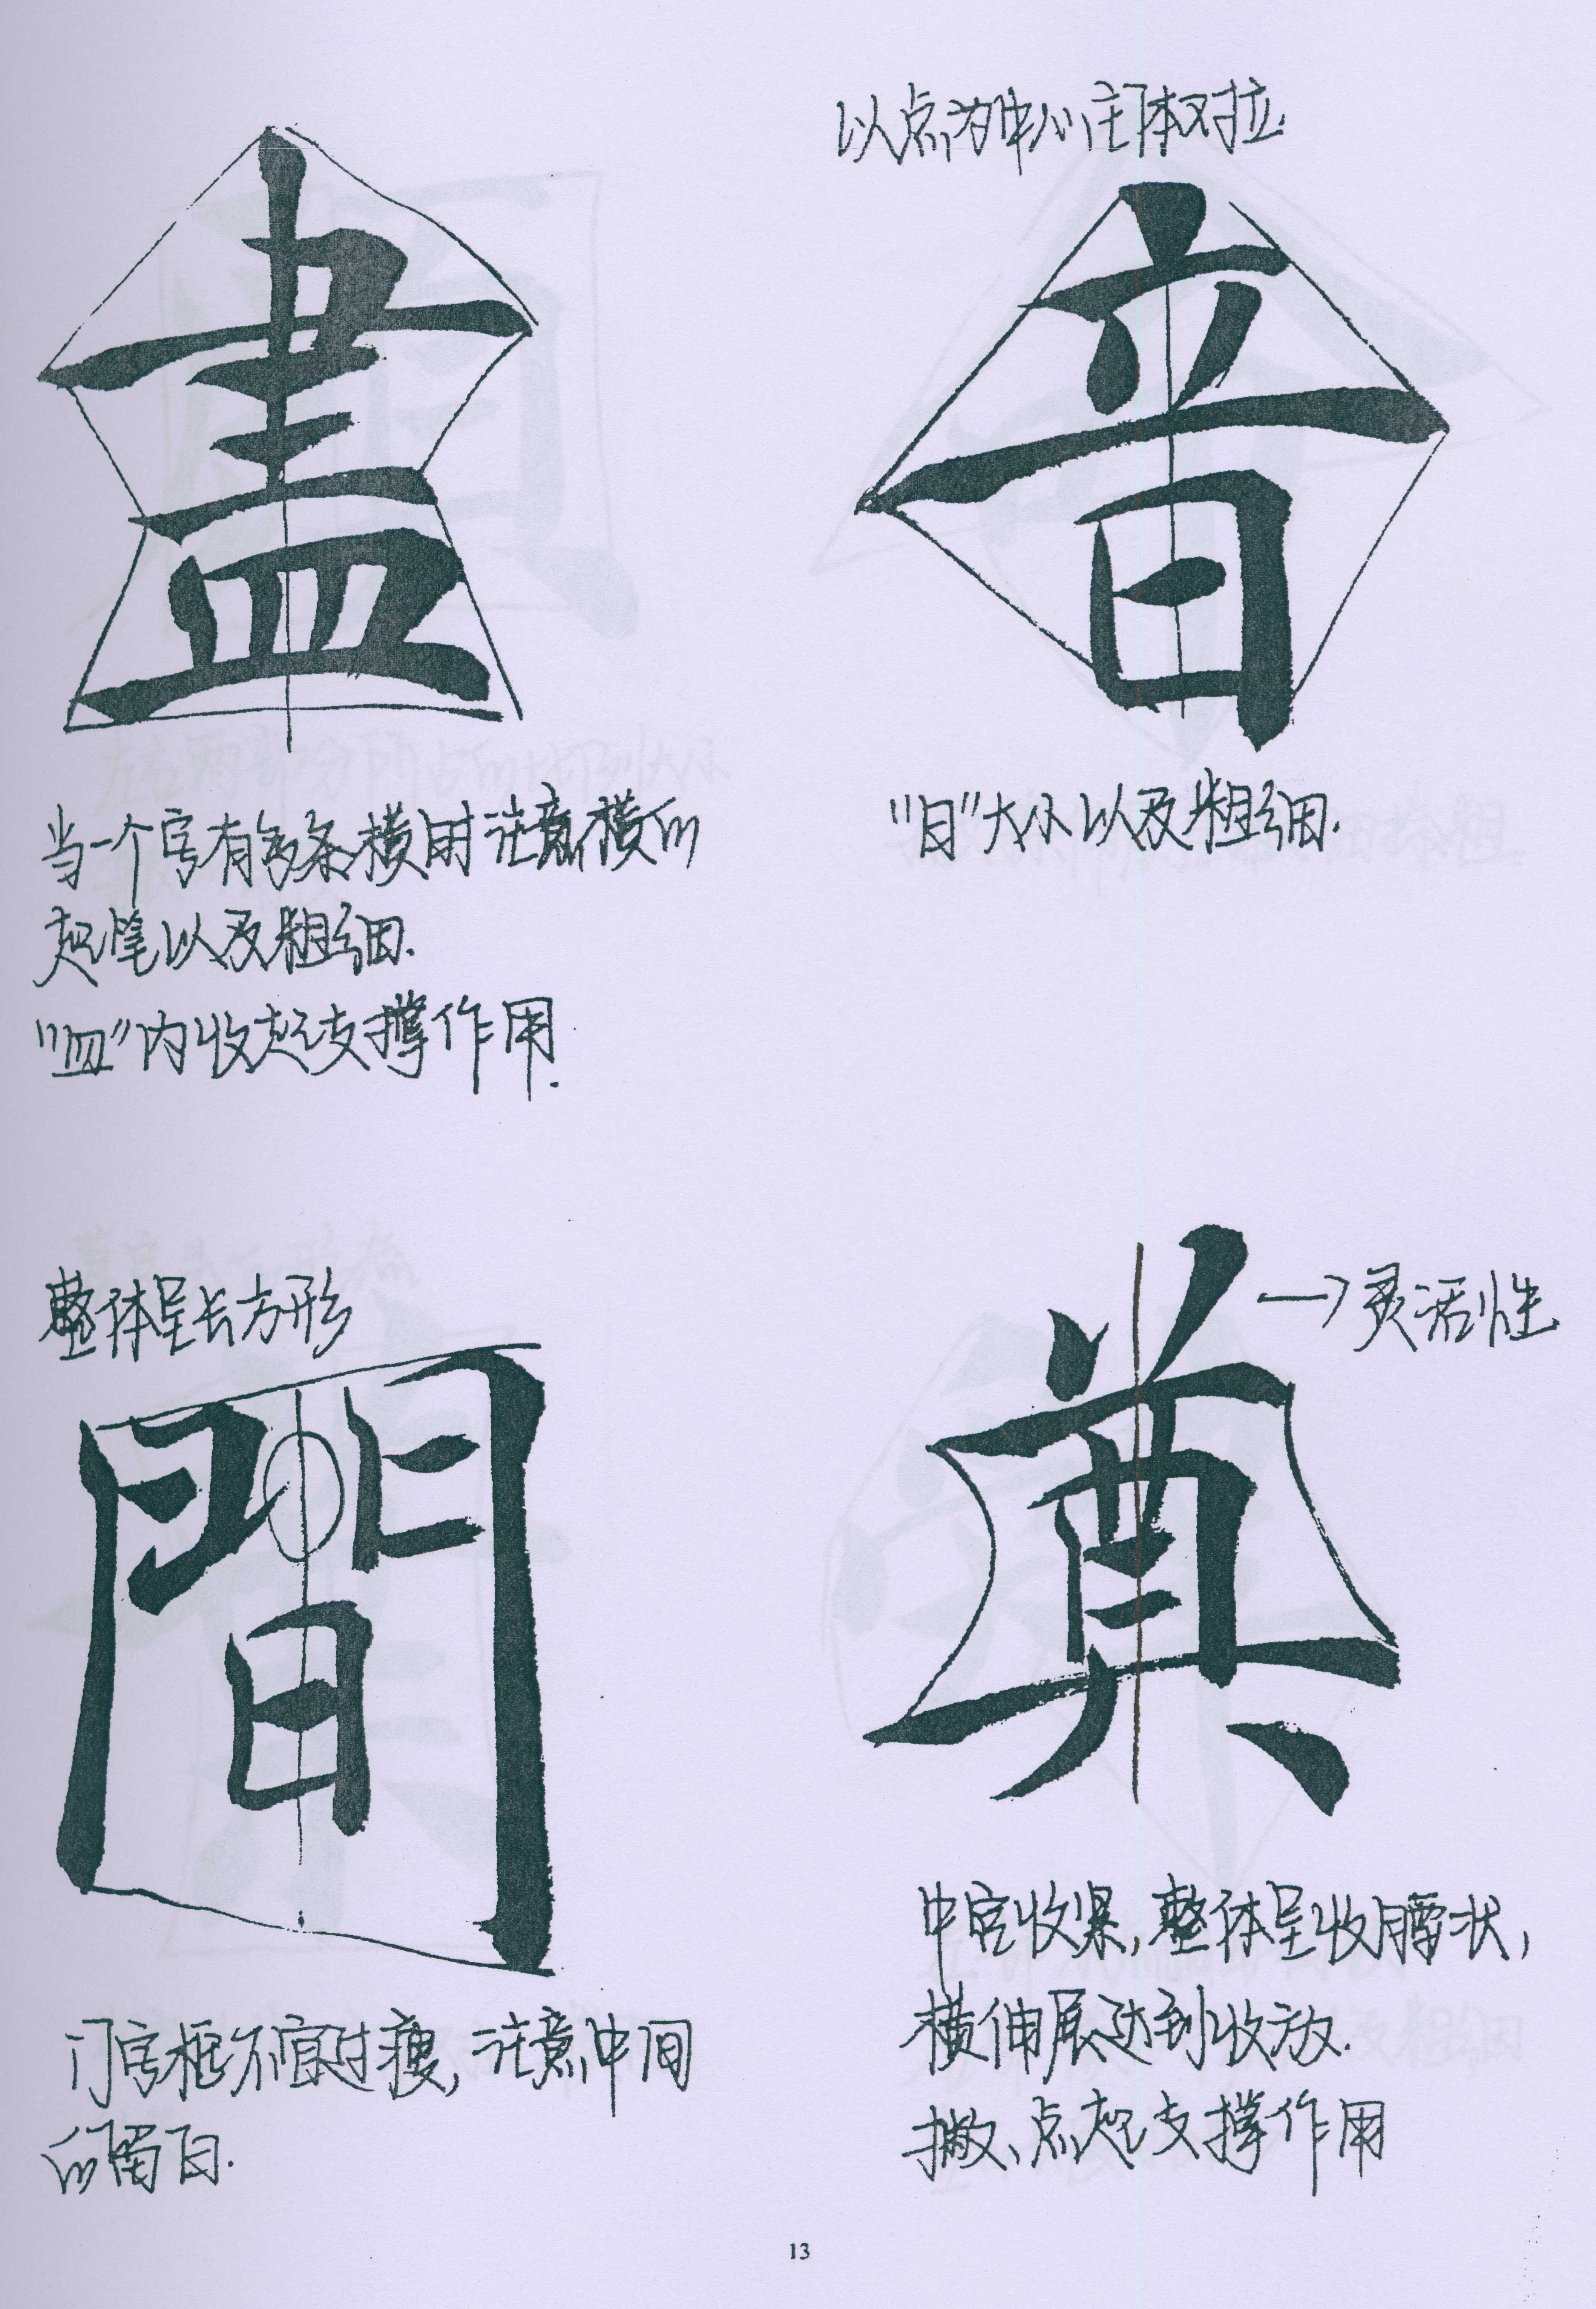 盡
当一个字有多条横时注意横的
起笔以及粗细.
"皿"内收起支撑作用.
以点为中心体对拉.
音
"日"大小以及粗细.
整体呈长方形
間
门字框不宜过瘦,注意中间
的留白.
奠
→灵活性
中宫收紧,整体呈收腰状,
横伸展达到收放.
撇、点起支撑作用
13